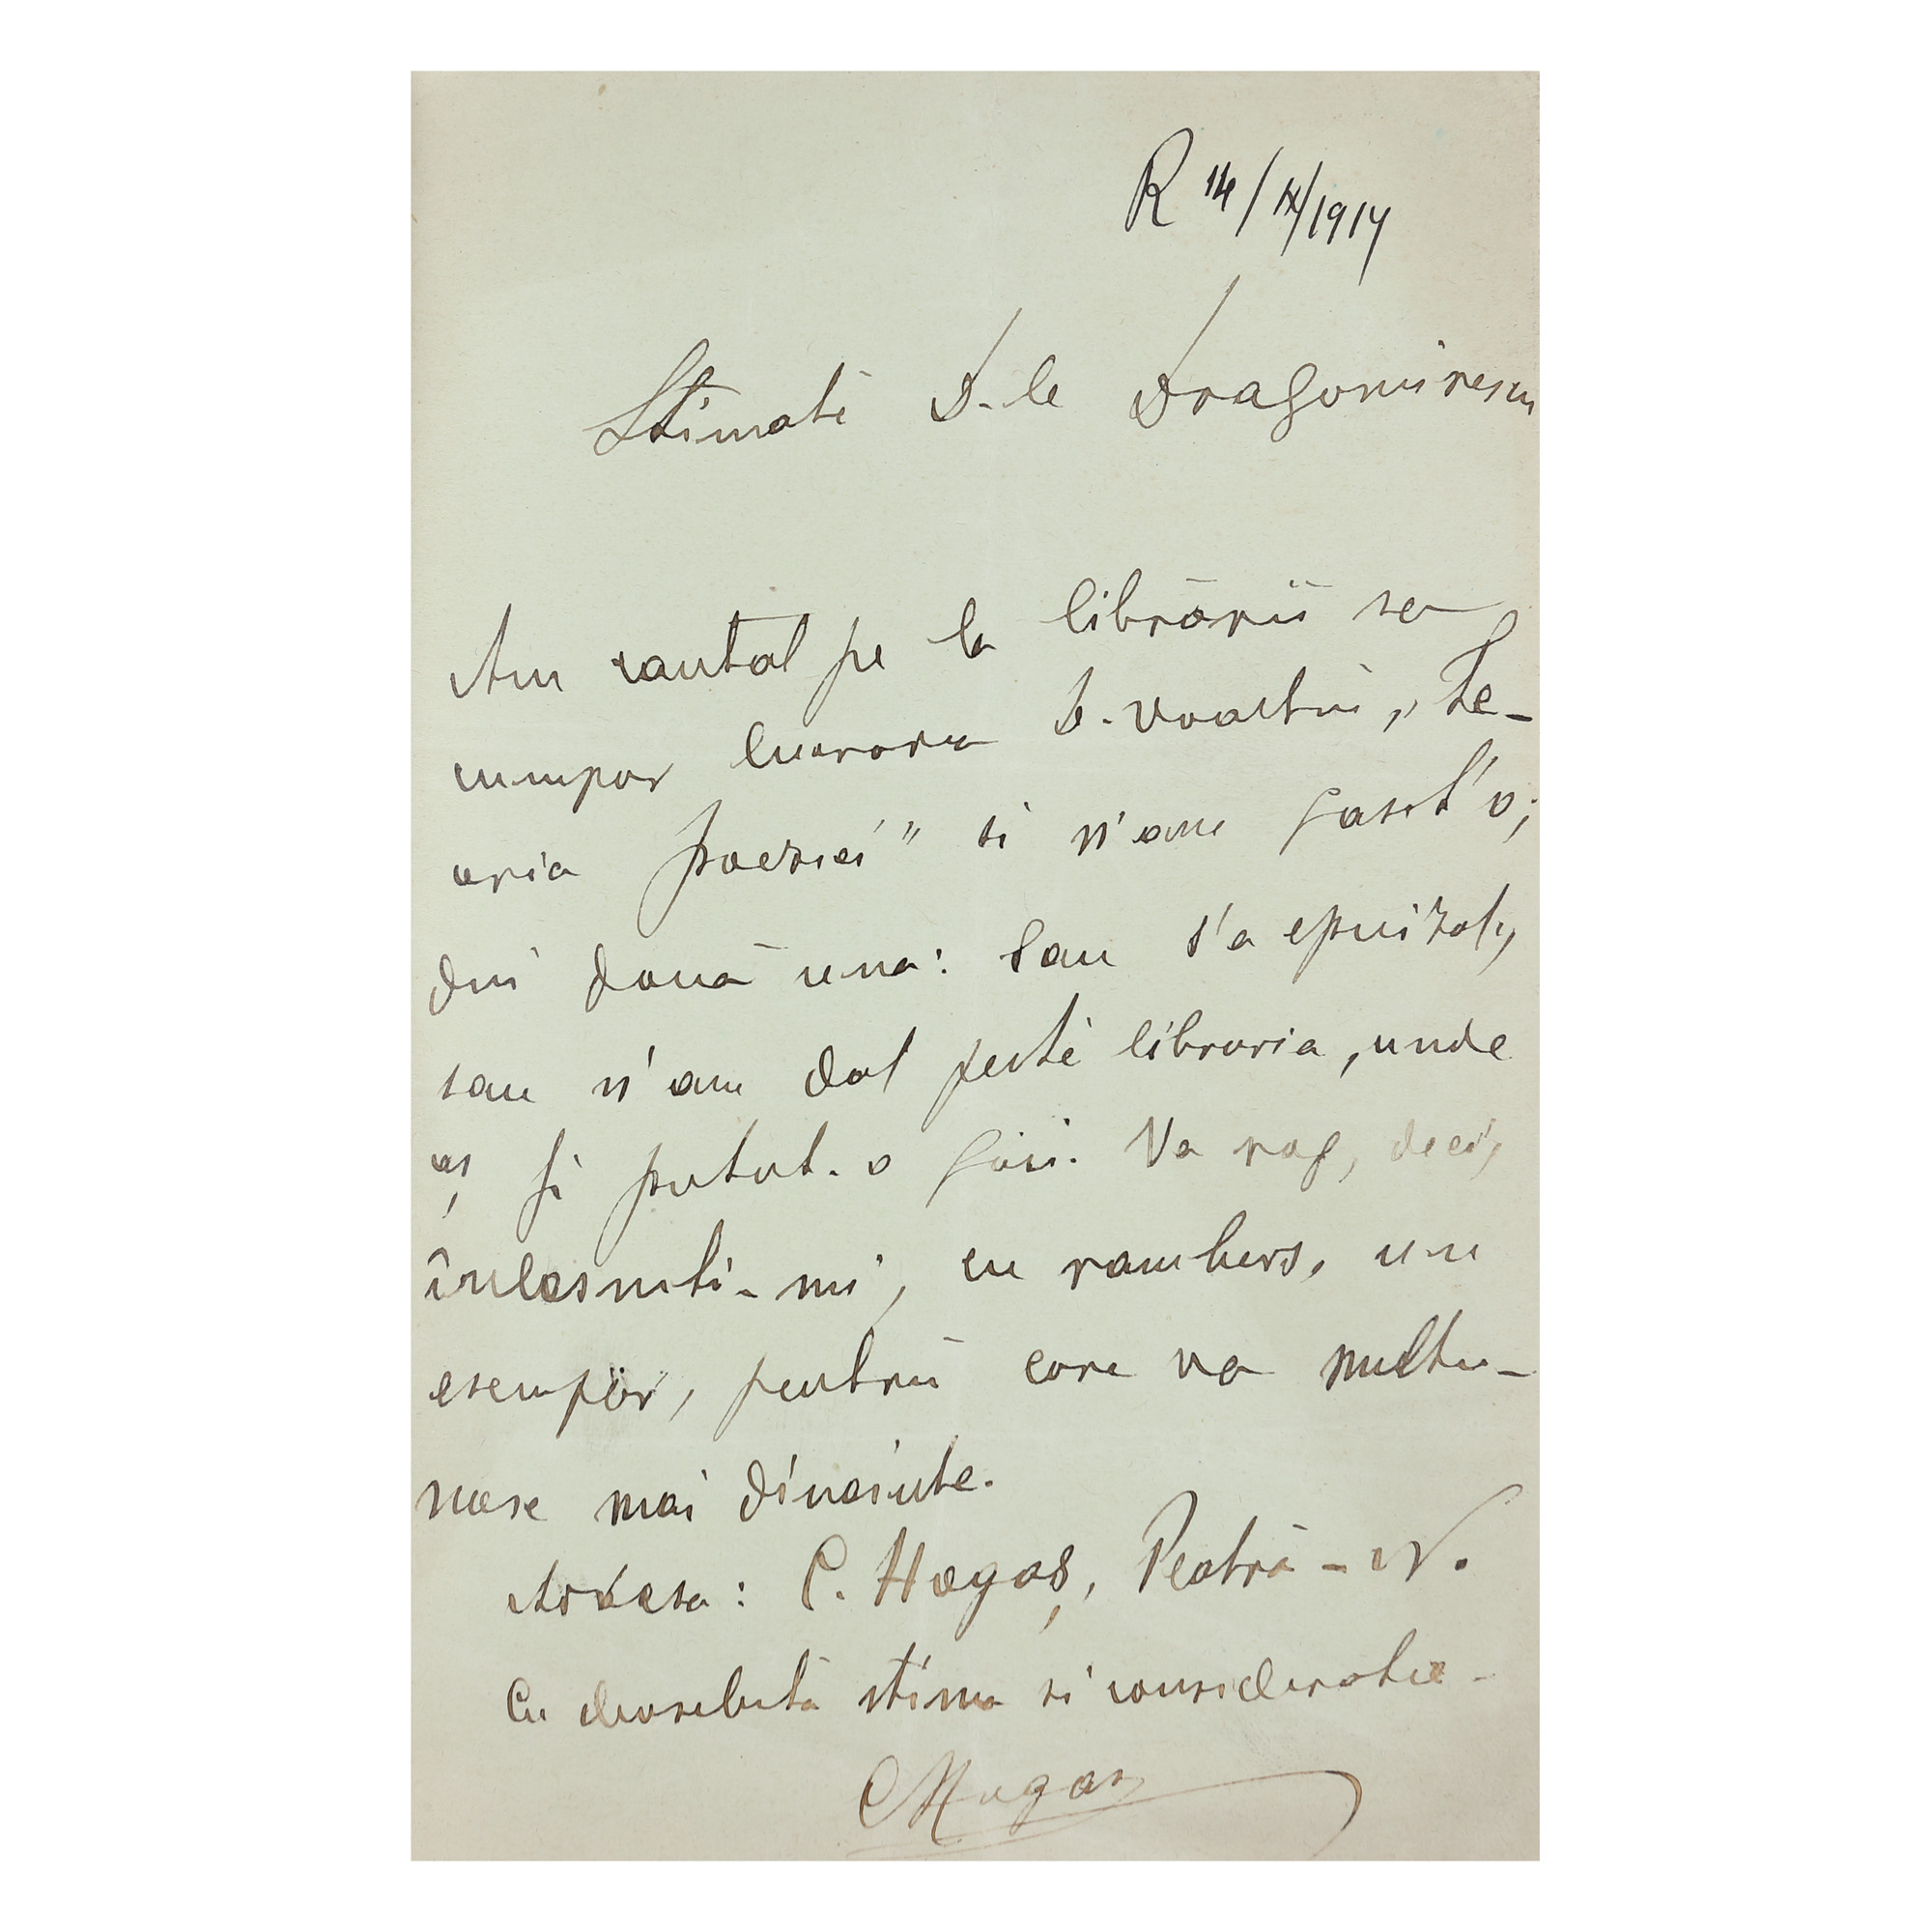 R 14/IX/1914
Stimate D-le Dragomirescu
Am cautat pe la librării sa
cumpar lucrarea D-voastre, „Te-
oria poeziei" si n'am gasit'o;
din două una: sau s'a epuizat,
sau n'am dat peste libraria, unde
aș fi putut-o găsi. Va rog, deci,
înlesniti-mi, cu ramburs, un
esemplar, pentru care va multu-
mesc mai dinainte.
Adresa: C. Hogaș, Peatră-N.
Cu deosebită stima si consideratie-
CHogas